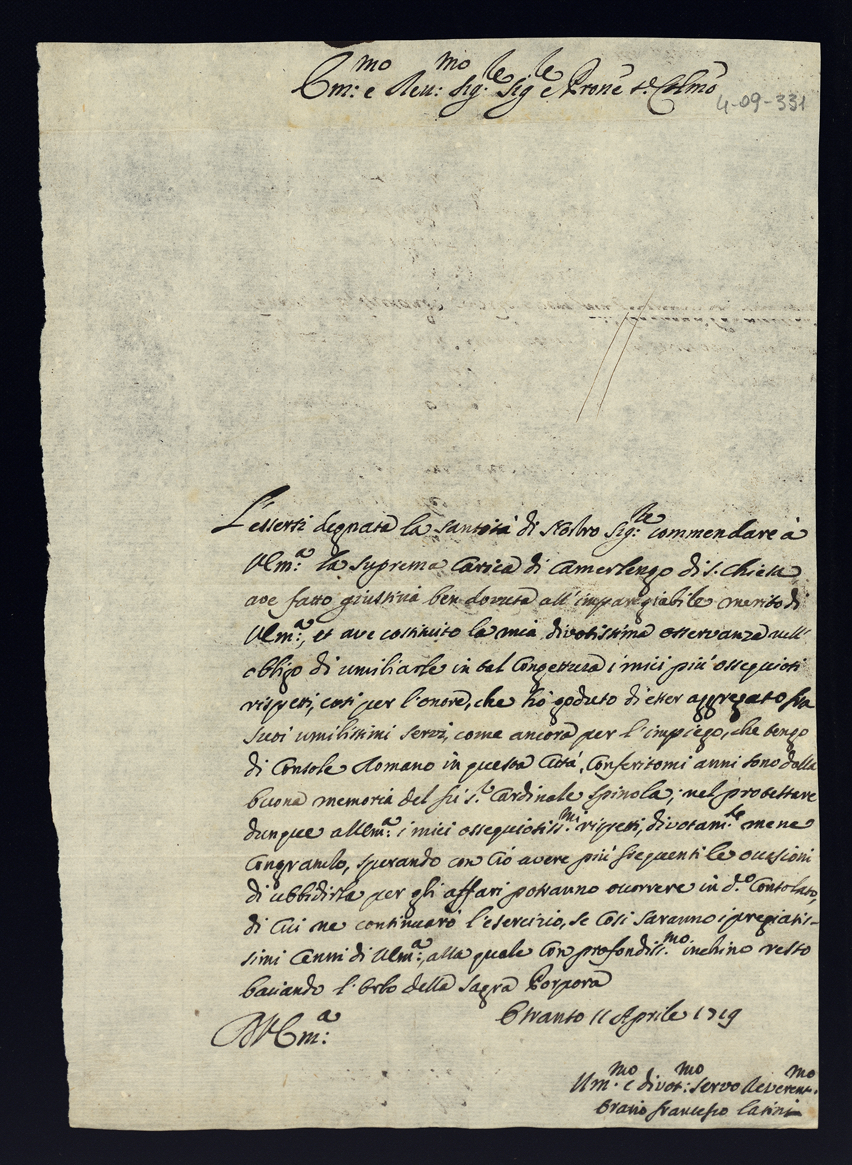 Em.mo e Reu.mo Sig.re Sig.re e Prone Colmo
4-09-331
L'essersi degnata la santità di Nostro Sig.re commendare à
VEm.a la suprema Carica di Camerlengo di S. Chiesa
ave fatto giustitia ben dovuta all'impareggiabile merito di
VEm.a, et ave costituito la mia divotissima osservanza nell'
obligo di umiliarle in tal Congettura i miei più ossequiosi
rispetti, così per l'onore, che hò goduto di esser aggregato fra
suoi umilissimi servi, come ancora per l'impiego, che tengo
di Console Romano in questa Città, Conferitomi anni sono dalla
buona memoria del fù S.r Cardinale Spinola; nel protestare
dunque a VEm.a i miei ossequiosiss.mi rispetti, divotam.te me ne
Congratulo, sperando con Ciò avere più frequenti le occasioni
di ubbidirla per gli affari potranno occorrere in d.o Consolato,
di cui ne continuarò l'esercizio, se Così saranno i pregiatis-
simi Cenni di VEm.a, alla quale Con profondiss.mo inchino resto
baciando l'Orlo della Sagra Porpora
Otranto 11 Aprile 1719
VEm.a
Um.mo e divot.mo servo Reverent.mo
Orazio Francesco